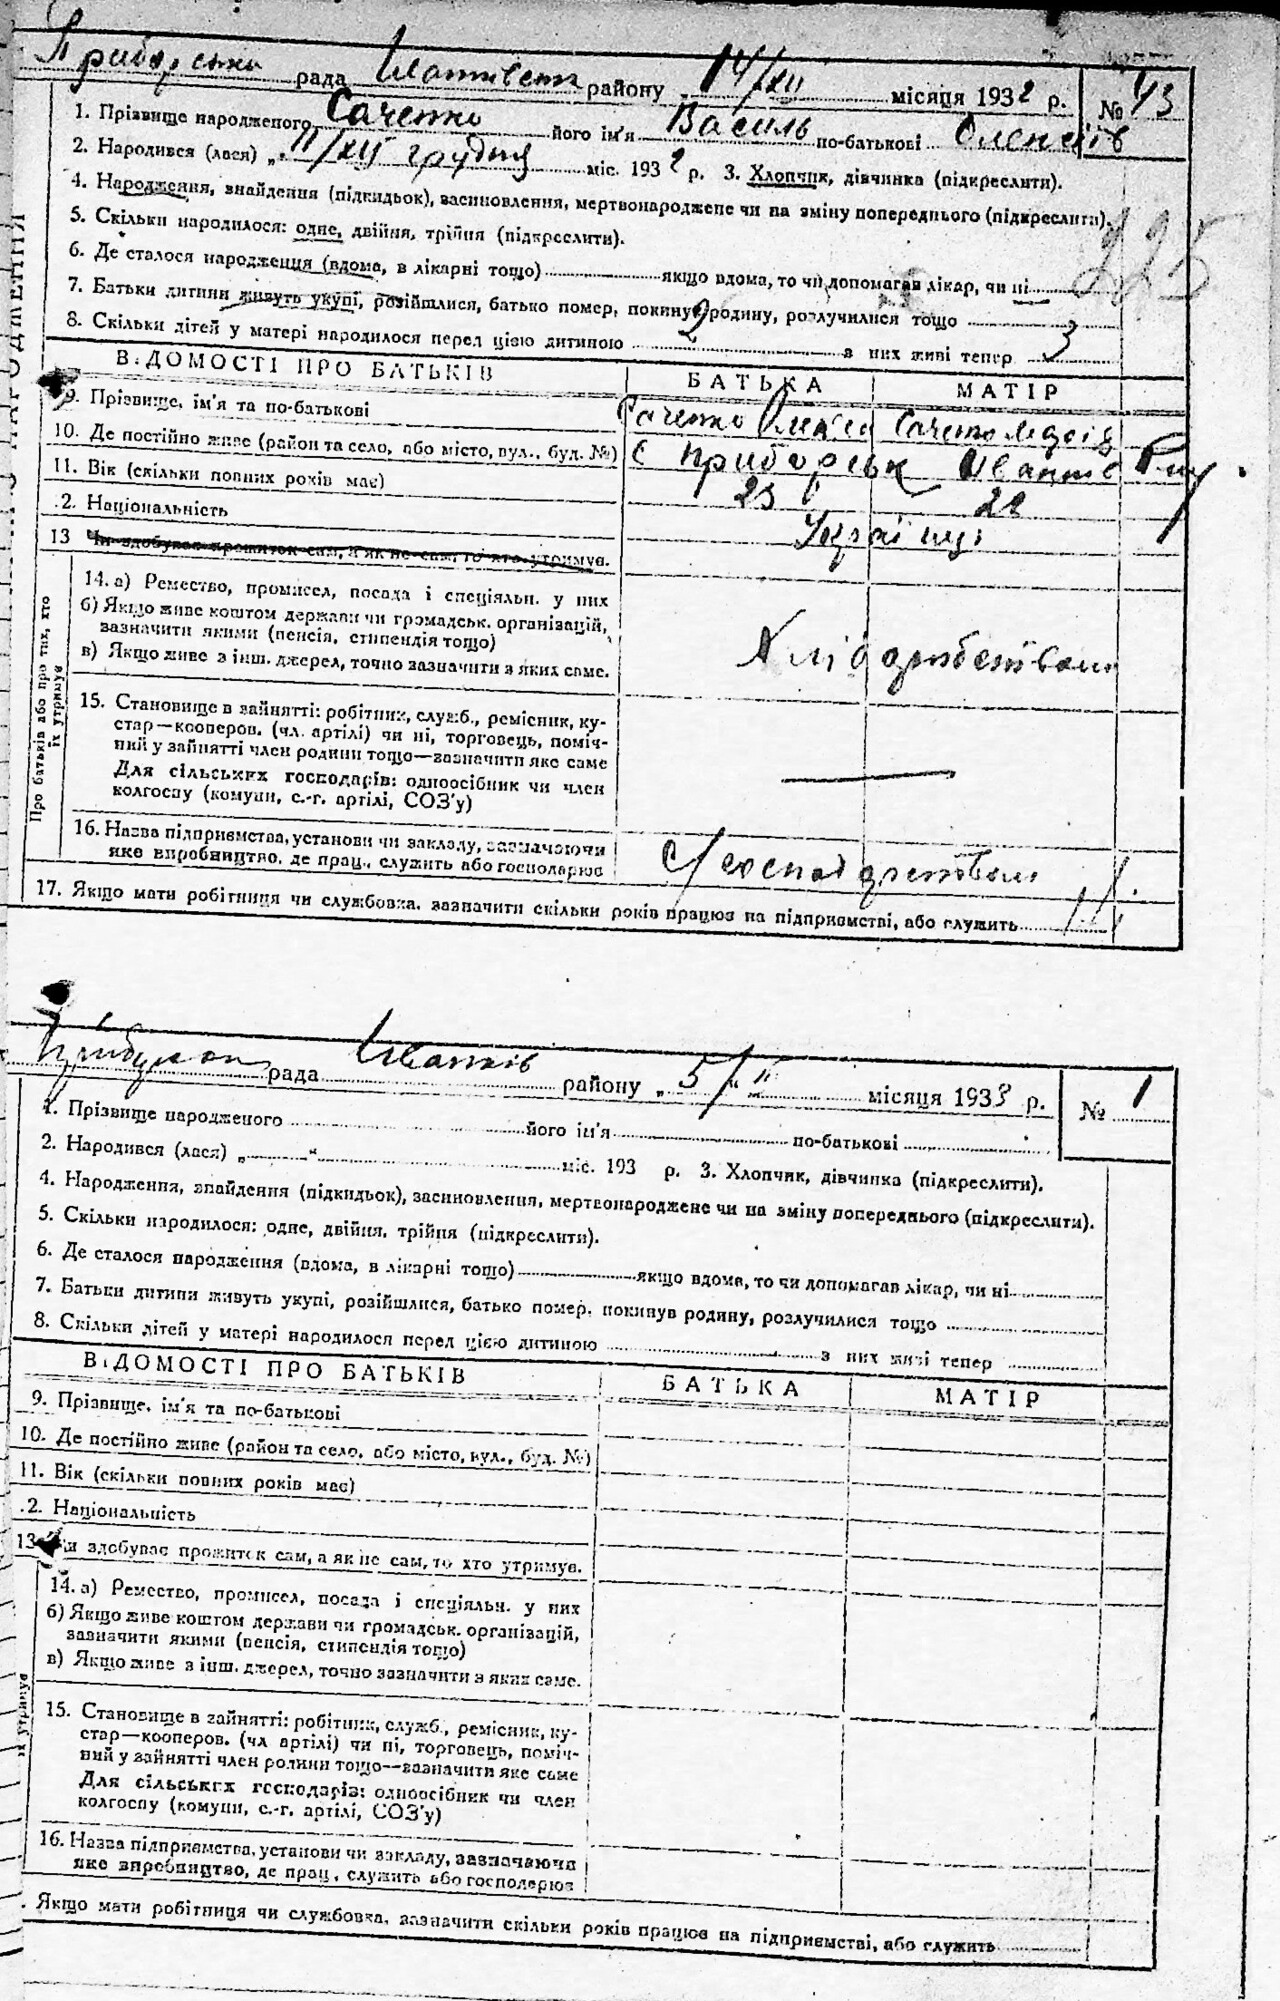 Приборська рада Іванківськ району „14/XII місяця 1932 р. № 43
1. Прізвище народженого Саченко його ім'я Василь по-батькові Олексіїв
2. Народився (лася) „11/XII грудня міс. 1932 р. 3. Хлопчик, дівчинка (підкреслити).
4. Народження, знайдення (підкидьок), засиновлення, мертвонароджене чи на зміну попереднього (підкреслити).
5. Скільки народилося: одне, двійня, трійня (підкреслити).
6. Де сталося народження (вдома, в лікарні тощо) якщо вдома, то чи допомагав лікар, чи ні
7. Батьки дитини живуть укупі, розійшлися, батько помер, покинув родину, розлучилися тощо
8. Скільки дітей у матері народилося перед цією дитиною 2 з них живі тепер 3
225
ВІДОМОСТІ ПРО БАТЬКІВ БАТЬКА МАТІР
9. Прізвище, ім'я та по-батькові Саченко Олекса Саченко
10. Де постійно живе (район та село, або місто, вул., буд. №) с Приборськ Іванків
11. Вік (скільки повних років має)
2. Національність Українці
13 Чи здобуває прожиток сам, а як не сам, то хто утримує.
Про батьків або про тих, хто їх утримує
14. а) Ремество, промисел, посада і спеціяльн. у них
б) Якщо живе коштом держави чи громадськ. організацій,
зазначити якими (пенсія, стипендія тощо)
в) Якщо живе з інш. джерел, точно зазначити з яких саме.
Хліборобством
15. Становище в зайнятті: робітник, служб., ремісник, ку-
стар—кооперов. (чл. артілі) чи ні, торговець, поміч-
ний у зайнятті член родини тощо—зазначити яке саме
Для сільських господарів: одноосібник чи член
колгоспу (комуни, с.-г. артілі, СОЗ'у)
16. Назва підприємства, установи чи закладу, зазначаючи
яке виробництво, де прац., служить або господарює
С/господарством
17. Якщо мати робітниця чи службовка, зазначити скільки років працює на підприємстві, або служить
рада Іванків району „5/II місяця 1933 р. № 1
1. Прізвище народженого його ім'я по-батькові
2. Народився (лася) „ “ міс. 193 р. 3. Хлопчик, дівчинка (підкреслити).
4. Народження, знайдення (підкидьок), засиновлення, мертвонароджене чи на зміну попереднього (підкреслити).
5. Скільки народилося: одне, двійня, трійня (підкреслити).
6. Де сталося народження (вдома, в лікарні тощо) якщо вдома, то чи допомагав лікар, чи ні
7. Батьки дитини живуть укупі, розійшлися, батько помер, покинув родину, розлучилися тощо
8. Скільки дітей у матері народилося перед цією дитиною з них живі тепер
ВІДОМОСТІ ПРО БАТЬКІВ БАТЬКА МАТІР
9. Прізвище, ім'я та по-батькові
10. Де постійно живе (район та село, або місто, вул., буд. №)
11. Вік (скільки повних років має)
.2. Національність
13 Чи здобуває прожиток сам, а як не сам, то хто утримує.
їх утримує
14. а) Ремество, промисел, посада і спеціяльн. у них
б) Якщо живе коштом держави чи громадськ. організацій,
зазначити якими (пенсія, стипендія тощо)
в) Якщо живе з інш. джерел, точно зазначити з яких саме.
15. Становище в зайнятті: робітник, служб., ремісник, ку-
стар—кооперов. (чл артілі) чи ні, торговець, поміч-
ний у зайнятті член родини тощо—зазначити яке саме
Для сільських господарів: одноосібник чи член
колгоспу (комуни, с.-г. артілі, СОЗ'у)
16. Назва підприємства, установи чи закладу, зазначаючи
яке виробництво, де прац., служить або господарює
. Якщо мати робітниця чи службовка, зазначити скільки років працює на підприємстві, або служить